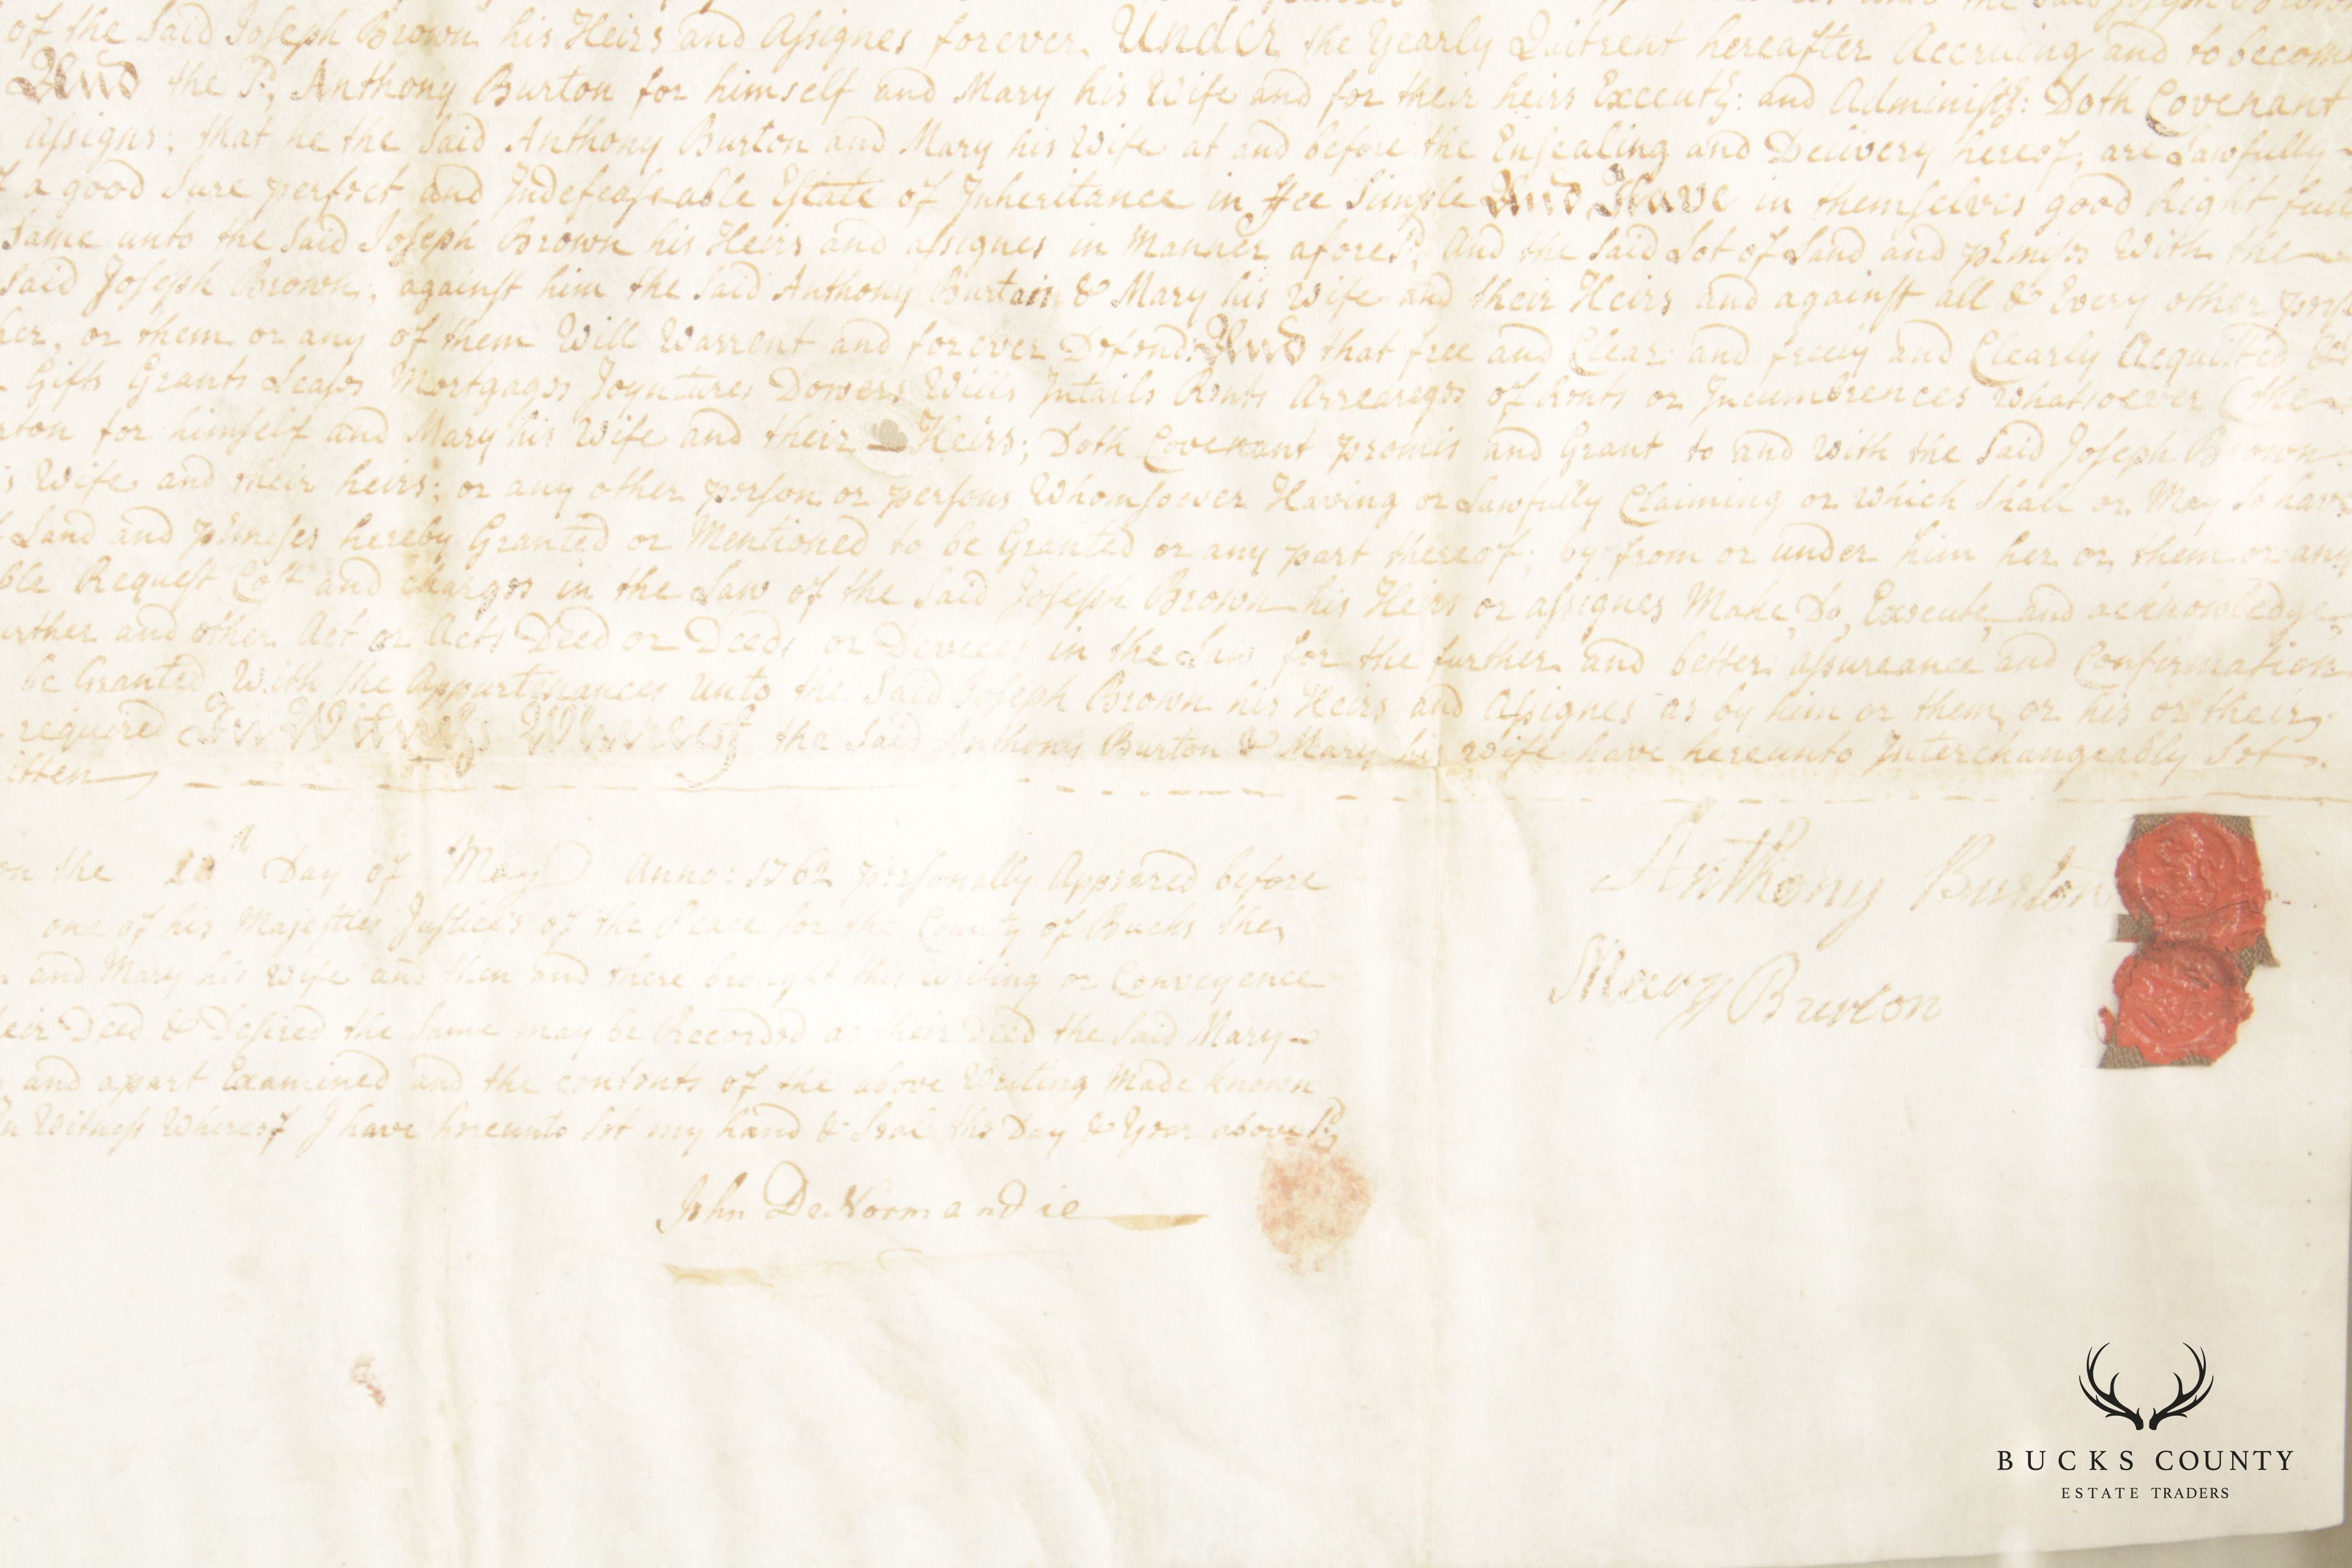 of the Said Joseph Brown his Heirs and Assignes forever. Under the Yearly Quitrent hereafter Accruing and to become
And the sd. Anthony Burton for himself and Mary his Wife and for their heirs Executs: and Administs: Doth Covenant
Assigns; that he the Said Anthony Burton and Mary his Wife at and before the Ensealing and Delivery hereof, are Lawfully
a good Sure perfect and Indefeaseable Estate of Inheritance in Fee Simple And Have in themselves good Right full
Same unto the Said Joseph Brown his Heirs and assignes in Manner aforesd. And the Said Lot of Land and premises With the
Said Joseph Brown, against him the Said Anthony Burton & Mary his Wife and their Heirs and against all & Every other
her, or them or any of them Will Warrent and forever Defend. And that free and Clear and freely and Clearly Acquitted &
Gifts Grants Leases Mortgages Joyntures Dowers Wills Intails Rents Arreareges of Rents or Incumbrences Whatsoever (the
rton for himself and Mary his Wife and their Heirs; Doth Covenant promis and Grant to and with the Said Joseph Brown
s Wife and their heirs; or any other person or persons Whomsoever Having or Lawfully Claiming or which Shall or May So have
Land and premises hereby Granted or Mentioned to be Granted or any part thereof; by from or under him her or them or any
ble Request Cost and charges in the Law of the Said Joseph Brown his Heirs or assignes Make, Do, Execute, and acknowledge
urther and other Act or Acts Deed or Deeds or Devices in the Law for the further and better assureance and Confirmation
be Granted With the Appurtenances unto the Said Joseph Brown his Heirs and Assignes as by him or them or his or their
required In Witness Whereof the Said Anthony Burton & Mary his wife have hereunto Interchangeably Set
itten
on the 20th Day of May Anno: 1762 personally Appeared before
one of his Majesties Justice's of the Peace for the County of Bucks the
and Mary his Wife and then and there brought this Writing or Conveyence
eir Deed & Desired the Same may be Recorded as their Deed the Said Mary
and apart Examined and the contents of the above Writing Made known
In Witness Whereof I have hereunto Set my hand & Seal the Day & Year above sd.
Anthony Burton
Mary Burton
John DeNormandie
BUCKS COUNTY
ESTATE TRADERS